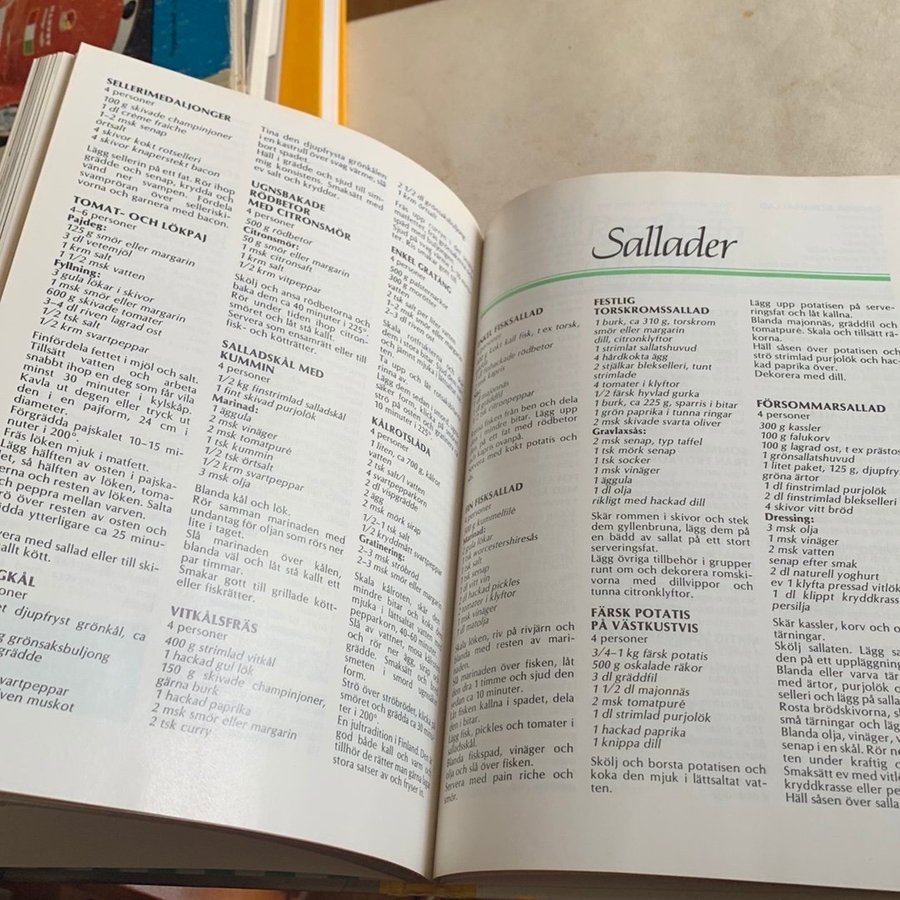 SELLERIMEDALJONGER
4 personer
100 g skivade champinjoner
1 dl crème fraiche
1–2 msk senap
örtsalt
4 skivor kokt rotselleri
4 skivor knaperstekt bacon
Lägg sellerin på ett fat. Rör ihop
grädde och senap, krydda och
vänd ner svampen. Fördela
svampröran över selleriski-
vorna och garnera med bacon.
TOMAT- OCH LÖKPAJ
4–6 personer
Pajdeg:
125 g smör eller margarin
3 dl vetemjöl
1 krm salt
1 1/2 msk vatten
Fyllning:
3 gula lökar i skivor
1 msk smör eller margarin
600 g skivade tomater
3–4 dl riven lagrad ost
1/2 tsk salt
1/2 krm svartpeppar
Finfördela fettet i mjöl och salt.
Tillsätt vatten och arbeta
snabbt ihop en deg som får vila
minst 30 minuter i kylskåp.
Kavla ut degen eller tryck ut
den i en pajform, 24 cm i
diameter.
Förgrädda pajskalet 10–15 mi-
nuter i 200°.
Fräs löken mjuk i matfett.
Lägg hälften av osten i pajska-
let, så hälften av löken, toma-
terna och resten av löken. Salta
och peppra mellan varven.
Strö över resten av osten och
grädda ytterligare ca 25 minu-
vera med sallad eller till ski-
kallt kött.
GKÅL
oner
et djupfryst grönkål, ca
g grönsaksbuljong
grädde
svartpeppar
iven muskot
Tina den djupfrysta grönkålen
i en kastrull över svag värme, slå
bort spadet.
Häll i grädde och sjud till sim-
mig konsistens. Smaksätt med
ev salt och kryddor.
UGNSBAKADE
RÖDBETOR
MED CITRONSMÖR
4 personer
500 g rödbetor
Citronsmör:
50 g smör eller margarin
1 msk citronsaft
1 krm salt
1/2 krm vitpeppar
Skölj och ansa rödbetorna och
baka dem ca 40 minuter i 225°.
Rör under tiden ihop citron-
smöret och låt stå kallt.
Servera som ensamrätt eller till
fisk- och kötträtter.
SALLADSKÅL MED
KUMMIN
4 personer
1/2 kg finstrimlad salladskål
1 fint skivad purjolök
Marinad:
1 äggula
2 msk vinäger
2 msk tomatpuré
1 tsk kummin
1/2 tsk örtsalt
1/2 krm svartpeppar
1 msk olja
Blanda kål och lök.
Rör samman marinaden med
undantag för oljan som rörs ner
lite i taget.
Slå marinaden över kålen,
blanda väl och låt stå kallt ett
par timmar.
Smakar gott till grillade kött-
eller fiskrätter.
VITKÅLSFRÄS
4 personer
400 g strimlad vitkål
1 hackad gul lök
150 g skivade champinjoner,
gärna burk
1 hackad paprika
2 msk smör eller margarin
2 tsk curry
2 1/2 dl grönsaksbuljong
1 krm örtsalt
ENKEL GRATÄNG
4 personer
500 g palsternackor
300 g morötter
vatten
2 tsk salt per liter vatten
2 msk smör eller margarin
2–3 dl riven ost
KÅLROTSLÅDA
4 personer
1 kålrot, ca 700 g
1 liten, hackad lök
vatten
2 tsk salt/l vatten
4 svartpepparkorn
2 dl vispgrädde
2 ägg
2 msk mörk sirap
1/2–1 tsk salt
1/2 kryddmått svartpeppar
Gratinering:
2–3 msk ströbröd
2–3 msk smör eller margarin
Skala kålroten, skär den i
mindre bitar och koka dem
mjuka i lättsaltat vatten med
pepparkorn, 40–60 minuter.
Slå av vattnet, mosa kålroten
och rör ner ägg, sirap och
grädde. Smaksätt och häll
smeten i smord ugnssäker
form.
Strö över ströbröd, klicka på
smöret och grädda ca 30 minu-
ter i 200°.
En jultradition i Finland. Den är
god både kall och varm och
tillhör de rätter man gärna lagar
stora satser av och fryser in.
Sallader
ENKEL FISKSALLAD
g kokt kall fisk, t ex torsk,
hackade rödbetor
msk kapris
majonnäs
gräddfil
citronpeppar
ensa fisken från ben och dela
en i mindre bitar. Lägg upp
på ett fat med rödbetor
och kapris ovanpå.
med kokt potatis och
FIN FISKSALLAD
4 personer
g kummelfilé
2 gula lökar
tsk worcestershiresås
tsk salt
1 tsk senap
dl vitt vin
dl hackad pickles
2 tomater i klyftor
msk vinäger
dl matolja
Skala löken, riv på rivjärn och
blanda med resten av mari-
naden.
Slå marinaden över fisken, låt
den dra 1 timme och sjud den
sedan ca 10 minuter.
Låt fisken kallna i spadet, dela
den i bitar.
Lägg fisk, pickles och tomater i
salladsskål.
Blanda fiskspad, vinäger och
olja och slå över fisken.
Servera med pain riche och
smör.
FESTLIG
TORSKROMSSALLAD
1 burk, ca 310 g, torskrom
smör eller margarin
dill, citronklyftor
1 strimlat sallatshuvud
4 hårdkokta ägg
2 stjälkar blekselleri, tunt
strimlade
4 tomater i klyftor
1/2 färsk hyvlad gurka
1 burk, ca 225 g, sparris i bitar
1 grön paprika i tunna ringar
2 msk skivade svarta oliver
Gravlaxsås:
2 msk senap, typ taffel
1 tsk mörk senap
1 tsk socker
1 msk vinäger
1 äggula
1 dl olja
rikligt med hackad dill
Skär rommen i skivor och stek
dem gyllenbruna, lägg dem på
en bädd av sallat på ett stort
serveringsfat.
Lägg övriga tillbehör i grupper
runt om och dekorera romski-
vorna med dillvippor och
tunna citronklyftor.
FÄRSK POTATIS
PÅ VÄSTKUSTVIS
4 personer
3/4–1 kg färsk potatis
500 g oskalade räkor
3 dl gräddfil
1 1/2 dl majonnäs
2 msk tomatpuré
1 dl strimlad purjolök
1 hackad paprika
1 knippa dill
Skölj och borsta potatisen och
koka den mjuk i lättsaltat vat-
ten.
Lägg upp potatisen på serve-
ringsfat och låt kallna.
Blanda majonnäs, gräddfil och
tomatpuré. Skala och tillsätt rä-
korna.
Häll såsen över potatisen och
strö strimlad purjolök och hac-
kad paprika över.
Dekorera med dill.
FÖRSOMMARSALLAD
4 personer
300 g kassler
100 g falukorv
100 g lagrad ost, t ex prästost
1 grönsallatshuvud
1 litet paket, 125 g, djupfrysta
gröna ärtor
1 dl finstrimlad purjolök
2 dl finstrimlad blekselleri
4 skivor vitt bröd
Dressing:
3 msk olja
1 msk vinäger
2 msk vatten
senap efter smak
2 dl naturell yoghurt
ev 1 klyfta pressad vitlök
1 dl klippt kryddkrasse
persilja
Skär kassler, korv och o
tärningar.
Skölj sallaten. Lägg sa
den på ett uppläggning
Blanda eller varva tär
med ärtor, purjolök o
selleri och lägg på salla
Rosta brödskivorna, sk
små tärningar och läg
Blanda olja, vinäger, v
senap i en skål. Rör ne
ten under kraftig o
Smaksätt ev med vitle
kryddkrasse eller pe
Häll såsen över salla